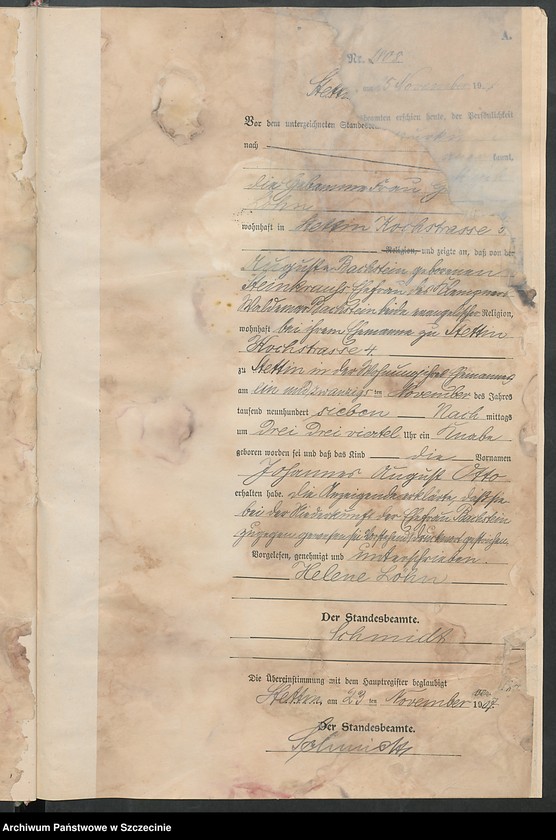 A.
Nr.
Stettin, am November 19
Vor dem unterzeichneten Standesbeamten erschien heute, der Persönlichkeit
nach
kannt,
die Hebamme Frau
Löhn
wohnhaft in Stettin Kochstrasse 5
Religion, und zeigte an, daß von der
Auguste Bachstein geborenen
Steinkrauss Ehefrau des Klempners
Waldemar Bachstein beide evangelischer Religion,
wohnhaft bei ihrem Ehemanne zu Stettin
Kochstrasse 4.
zu Stettin in der Wohnung ihres Ehemannes
am ein und zwanzigsten November des Jahres
tausend neunhundert sieben Nach mittags
um drei drei viertel Uhr ein Knabe
geboren worden sei und daß das Kind die Vornamen
Johannes August Otto
erhalten habe. Die Anzeigende erklärte, daß sie
bei der Niederkunft der Ehefrau Bachstein
zugegen gewesen sei. Vorstehend Druckwort gestrichen.
Vorgelesen, genehmigt und unterschrieben.
Helene Löhn
Der Standesbeamte.
Schmidt
Die Übereinstimmung mit dem Hauptregister beglaubigt
Stettin, am 23 ten November 1907.
Der Standesbeamte.
Schmidt
Archiwum Państwowe w Szczecinie